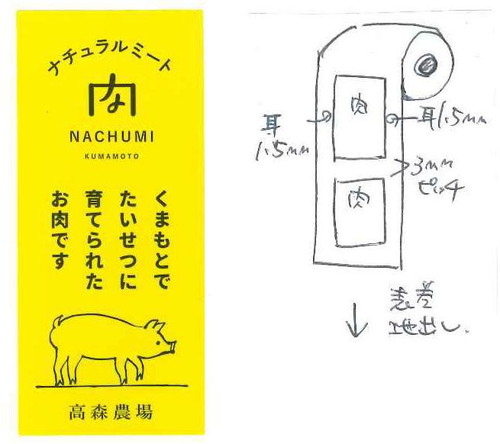 ナチュラルミート
肉
NACHUMI
KUMAMOTO
くまもとで
たいせつに
育てられた
お肉です
高森農場
肉
耳
1.5mm
耳1.5mm
3mm
ピッチ
肉
表巻
地出し.